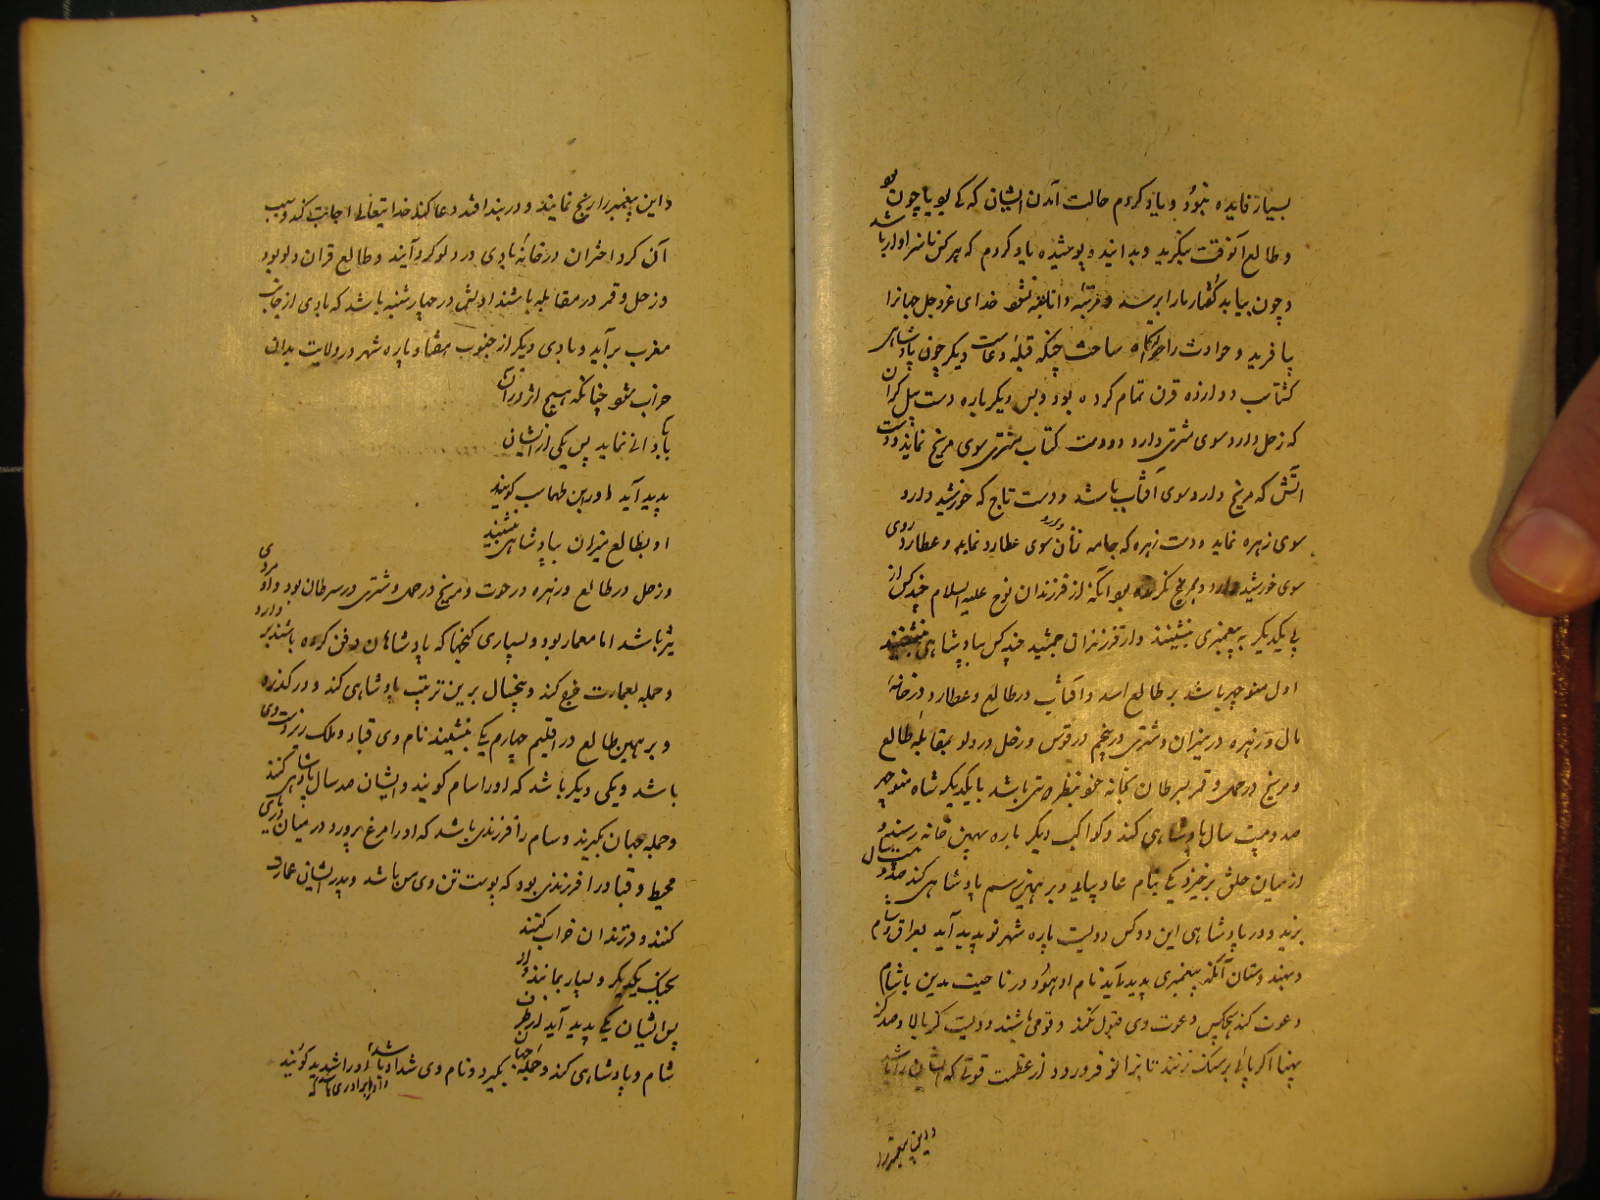 بسیار فایده نبود و یاد کردم حالت آمدن ایشان که کی بود یا چون بود
و طالع آنوقت بنگرید و بدانید و پوشیده یاد کردم که هر کس ناسزاوار باشد
و چون بیاید گفتار ما را برسد خدای عزوجل جهانرا
بیافرید و حوادث را ساخت چنانکه قبله دعاست دیگر چون پادشاهی
کتاب دوازده قرن تمام کرده بود و پس دیگر باره دست بیل گران
که زحل دارد سوی مشتری دارد و دست کتاب مشتری سوی مریخ نماید و دست
آتش که مریخ دارد سوی آفتاب باشد و دست تاج که خورشید دارد
سوی زهره نماید و دست زهره که جامه زنان سوی عطارد نماید و عطارد روی
سوی خورشید دارد بود آنگه از فرزندان نوح علیه السلام چند کس از
پی یکدیگر به پیغمبری بنشینند و از فرزندان جمشید چند کس بپادشاهی بنشینند
اول منوچهر باشد بر طالع اسد و آفتاب در طالع و عطارد در خانهٔ
مال و زهره در میزان و مشتری در پنجم در قوس و زحل در دلو بمقابلهٔ طالع
و مریخ در حمل و قمر بسرطان بخانه خود بنظر دوستی باشد با یکدیگر شاه منوچهر
صد و بیست سال پادشاهی کند و کواکب دیگر باره بهمین خانه رسند و
از میان خلق برخیزد یکی بنام عاد بیاید و بر همین رسم پادشاهی کند صد و بیست سال
بزید و در پادشاهی این دو کس دویست پاره شهر نو پدید آید بعراق و شام
و هندوستان آنگه پیغمبری پدید آید نام او هود در ناحیت مدین باشام
دعوت کند هیچکس دعوت وی قبول نکند و قومی باشند دویست گز بالا و صد گز
پهنا اگر پای بر سنگ زنند تا بزانو فرو رود از عظمت قوتی که ایشان را باشد
و این پیغمبر را
و این پیغمبر را رنج نمایند و در بند افتد دعا کند خدایتعالی اجابت کند و سبب
آن گرد اختران در خانهٔ بادی در دلو گرد آیند و طالع قران دلو بود
و زحل و قمر در مقابله باشند اولش در چهارشنبه باشد که بادی از جانب
مغرب برآید و بادی دیگر از جنوب هفتاد پاره شهر در ولایت بدان
خراب شود چنانکه هیچ اثر از آن
بآبادانی نماید پس یکی از ایشان
پدید آید طهماسب گویند
او بطالع میزان بپادشاهی بنشیند
و زحل در طالع و زهره در حوت و مریخ در حمل و مشتری در سرطان بود و او مردی
باشد اما معمار بود و بسیاری گنجها که پادشاهان دفن کرده باشند بردارد
و جمله بعمارت خرج کند و پنجسال برین ترتیب پادشاهی کند و درگذرد
و بر همین طالع در اقلیم چهارم یکی بنشیند نام وی قباد و ملک زیردست وی
باشد و یکی دیگر باشد که او را سام گویند و ایشان صد سال پادشاهی کنند
و جمله جهان بگیرند و سام را فرزندی باشد که او را مرغ پرورد در میان دریای
محیط و قباد را فرزندی بود که پوست تن وی مس باشد و پدر ایشان عمارت
کنند و فرزندان خراب کنند
بجنگ یکدیگر و بسیار بمانند و از
پس ایشان یکی پدید آید از طرف
شام و پادشاهی کند و جمله جهان بگیرد و نام وی شداد باشد و او را شدید گویند
و او را برادری باشد که